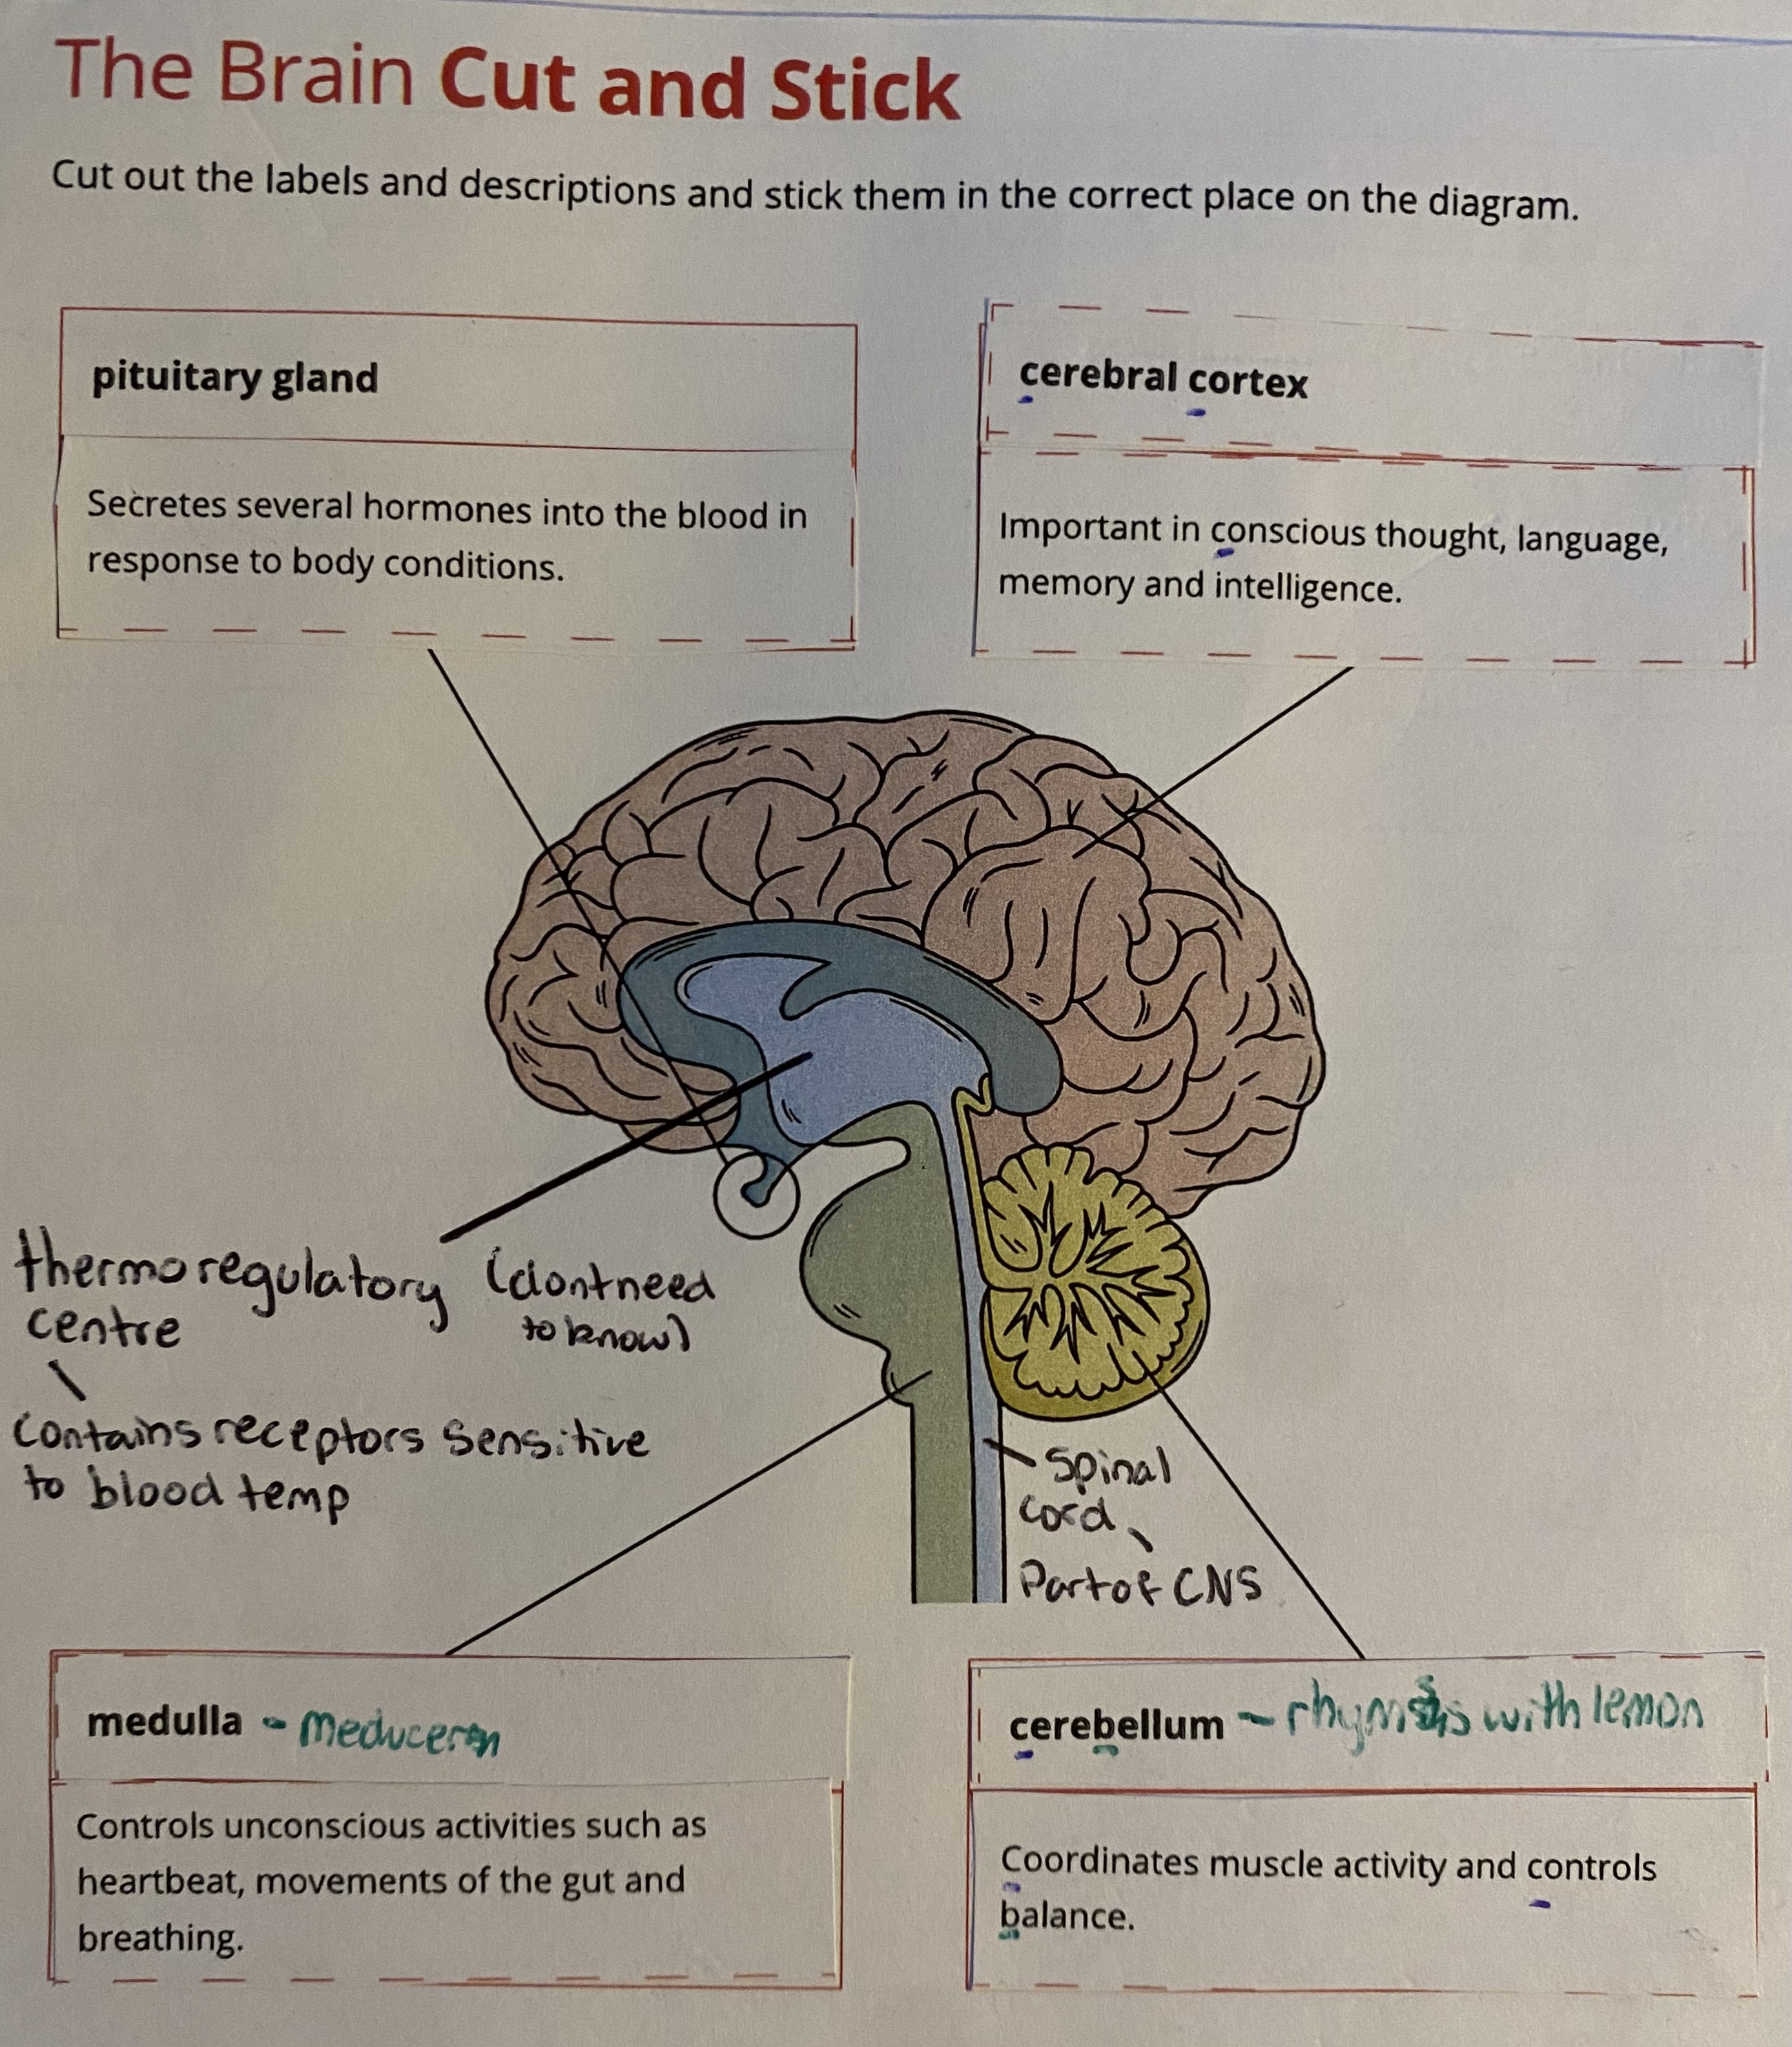 The Brain Cut and Stick
Cut out the labels and descriptions and stick them in the correct place on the diagram.
pituitary gland
Secretes several hormones into the blood in
response to body conditions.
cerebral cortex
Important in conscious thought, language,
memory and intelligence.
thermoregulatory (dont need
centre to know)
contains receptors sensitive
to blood temp
Spinal
cord
Part of CNS
medulla -
Controls unconscious activities such as
heartbeat, movements of the gut and
breathing.
cerebellum - with lemon
Coordinates muscle activity and controls
balance.